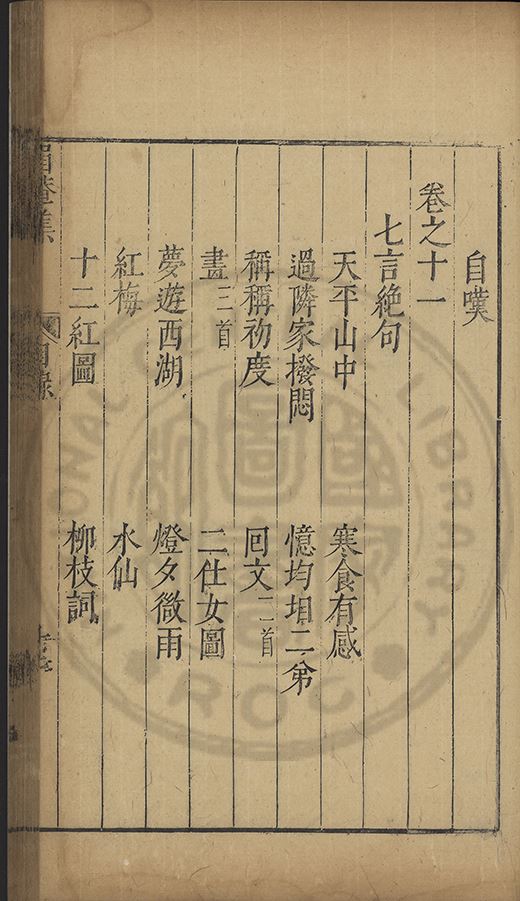 自嘆
卷之十一
七言絕句
天平山中　寒食有感
過隣家撥悶　憶均垍二弟
稱稱初度　回文二首
畫三首　二仕女圖
夢遊西湖　燈夕微雨
紅梅　水仙
十二紅圖　柳枝詞
眉菴集　目錄